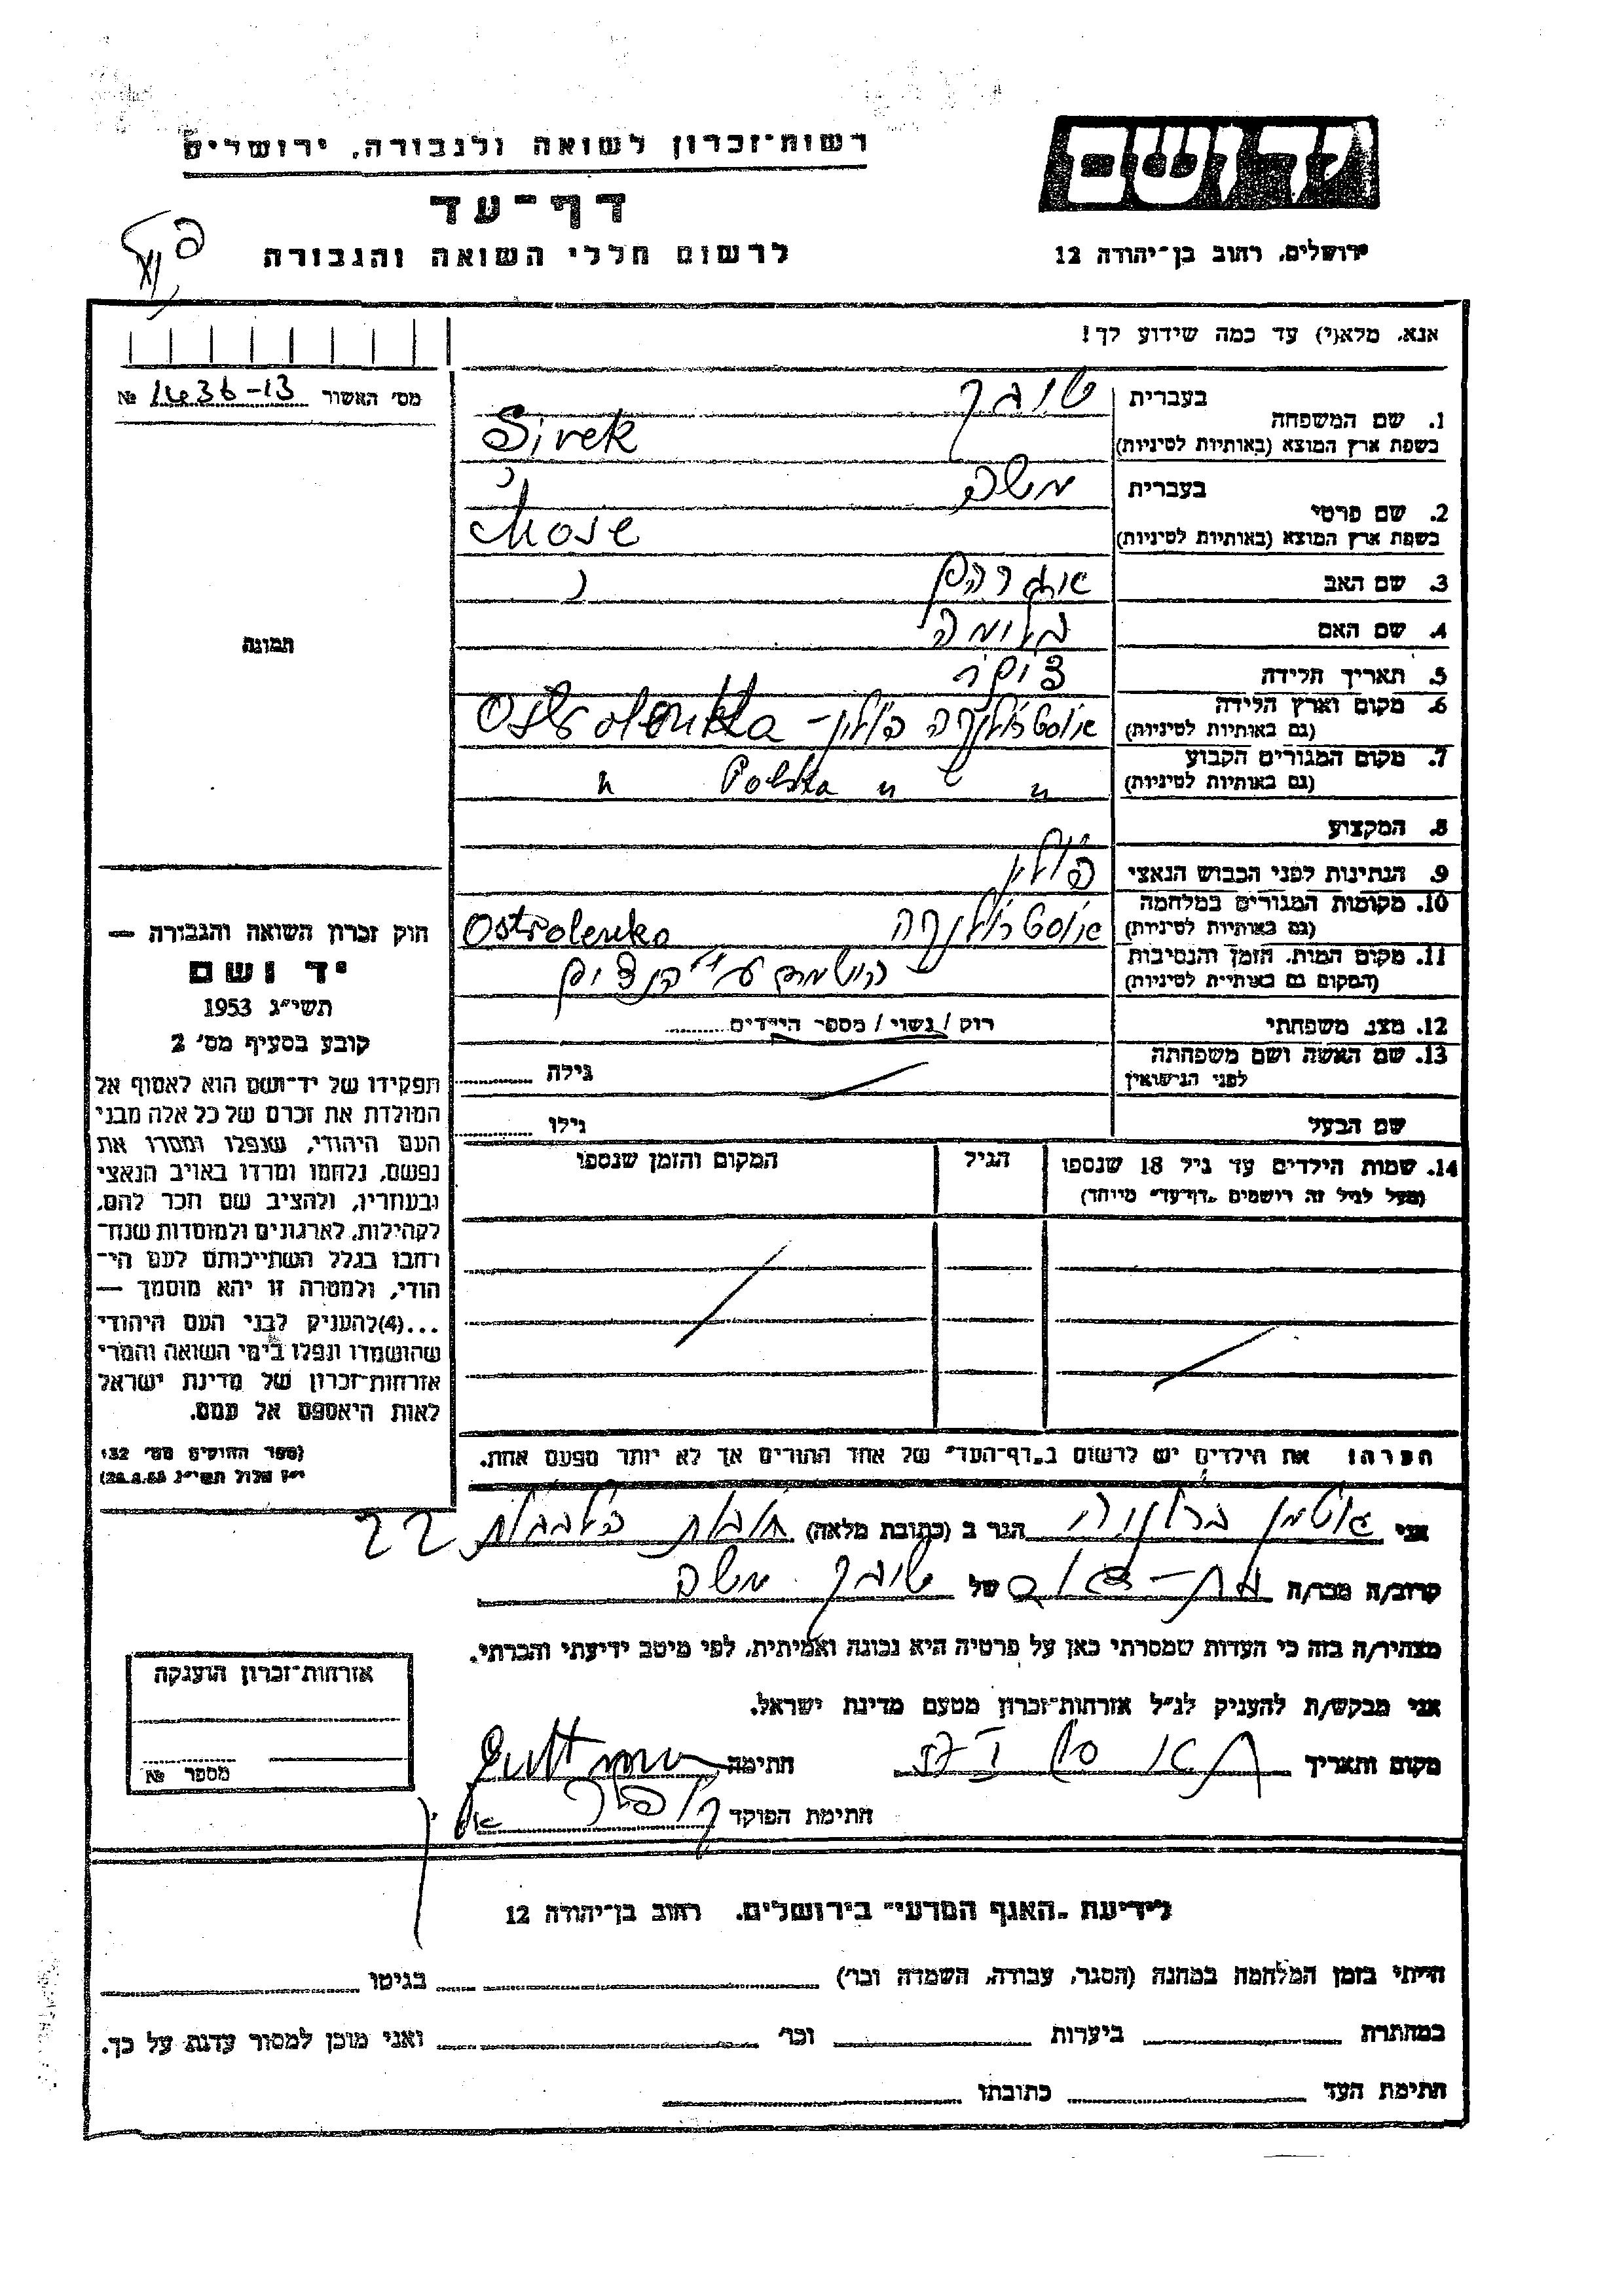 רשות־זכרון לשואה ולגבורה, ירושלים
יד ושם
דף־עד
לרשום חללי השואה והגבורה
ירושלים, רחוב בן־יהודה 12
אנא, מלא(י) עד כמה שידוע לך!
מס׳ האשור № 1436-13
1. שם המשפחה בעברית
בשפת ארץ המוצא (באותיות לטיניות) Sirek
2. שם פרטי בעברית משה
בשפת ארץ המוצא (באותיות לטיניות) Mose
3. שם האב אברהם
4. שם האם בלומה
5. תאריך הלידה
6. מקום וארץ הלידה (גם באותיות לטיניות) אוסטרולנקה פולין - Ostrolenka
7. מקום המגורים הקבוע (גם באותיות לטיניות) " " Polska "
8. המקצוע
9. הנתינות לפני הכבוש הנאצי פולין
10. מקומות המגורים במלחמה (גם באותיות לטיניות) אוסטרולנקה Ostrolenko
11. מקום המות, הזמן והנסיבות (המקום גם באותיות לטיניות) הושמד ע״י הנצים
12. מצב משפחתי רווק / נשוי / מספר הילדים
13. שם האשה ושם משפחתה לפני הנישואין גילה
שם הבעל גילו
14. שמות הילדים עד גיל 18 שנספו הגיל המקום והזמן שנספו
(מעל לגיל זה רושמים „דף־עד״ מיוחד)
תמונה
חוק זכרון השואה והגבורה —
יד ושם
תשי״ג 1953
קובע בסעיף מס׳ 2
תפקידו של יד־ושם הוא לאסוף אל
המולדת את זכרם של כל אלה מבני
העם היהודי, שנפלו ומסרו את
נפשם, נלחמו ומרדו באויב הנאצי
ובעוזריו, ולהציב שם וזכר להם,
לקהילות, לארגונים ולמוסדות שנח־
רבו בגלל השתייכותם לעם הי־
הודי, ולמטרה זו יהא מוסמך —
...(4) להעניק לבני העם היהודי
שהושמדו ונפלו בימי השואה והמרי
אזרחות־זכרון של מדינת ישראל
לאות היאספם אל עמם.
(ספר החוקים מס׳ 132,
י״ז אלול תשי״ג 28.8.53)
הערה: את הילדים יש לרשום ב„דף־העד״ של אחד ההורים אך לא יותר מפעם אחת.
אני גוטמן הגר ב (כתובת מלאה) 22
קרוב/ה מכר/ה של משה
מצהיר/ה בזה כי העדות שמסרתי כאן על פרטיה היא נכונה ואמיתית, לפי מיטב ידיעתי והכרתי.
אני מבקש/ת להעניק לנ״ל אזרחות־זכרון מטעם מדינת ישראל.
מקום ותאריך חתימה Guttman
חתימת הפוקד
אזרחות־זכרון הוענקה
מספר №
לידיעת „האגף המדעי״ בירושלים, רחוב בן־יהודה 12
הייתי בזמן המלחמה במחנה (הסגר, עבודה, השמדה וכו׳) בגיטו
במחתרת ביערות וכו׳ ואני מוכן למסור עדות על כך.
חתימת העד כתובתו